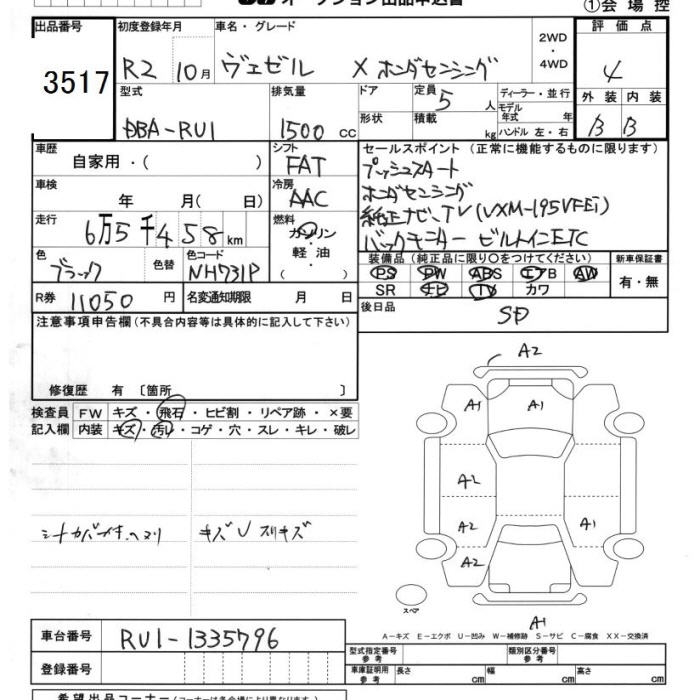 オークション出品申込書
①会場控
出品番号 3517
初度登録年月 R2 10月
車名・グレード ヴェゼル X ホンダセンシング
2WD・4WD
評価点 4
外装 B 内装 B
型式 DBA-RU1
排気量 1500 cc
ドア 形状
定員 5 人
積載 kg
ディーラー・並行
モデル年式 年
ハンドル 左・右
車歴 自家用・( )
シフト FAT
車検 年 月( 日)
冷房 AAC
走行 6万5千458km
燃料 ガソリン・軽油・( )
色 ブラック 色替
色コード NH731P
R券 11050 円
名変通知期限 月 日
セールスポイント(正常に機能するものに限ります)
プッシュスタート
ホンダセンシング
純正ナビ、TV(VXM-195VFEi)
バックモニター ビルトインETC
装備品(純正品に限り○をつけてください)
PS PW ABS エアB AW
SR ナビ TV カワ
新車保証書 有・無
後日品 SD
注意事項申告欄(不具合内容等は具体的に記入して下さい)
修復歴 有 〔箇所 〕
検査員記入欄
FW キズ・飛石・ヒビ割・リペア跡・×要
内装 キズ・汚レ・コゲ・穴・スレ・キレ・破レ
キズU スリキズ
A2
A1 A1
A2
A2 A1
A2
スペア
A1
A-キズ E-エクボ U-凹み W-補修跡 S-サビ C-腐食 XX-交換済
車台番号 RU1-1335796
登録番号
型式指定番号 参考
類別区分番号 参考
車庫証明用 参考 長さ cm 幅 cm 高さ cm
希望出品コーナー(コーナーは各会場により異なります)